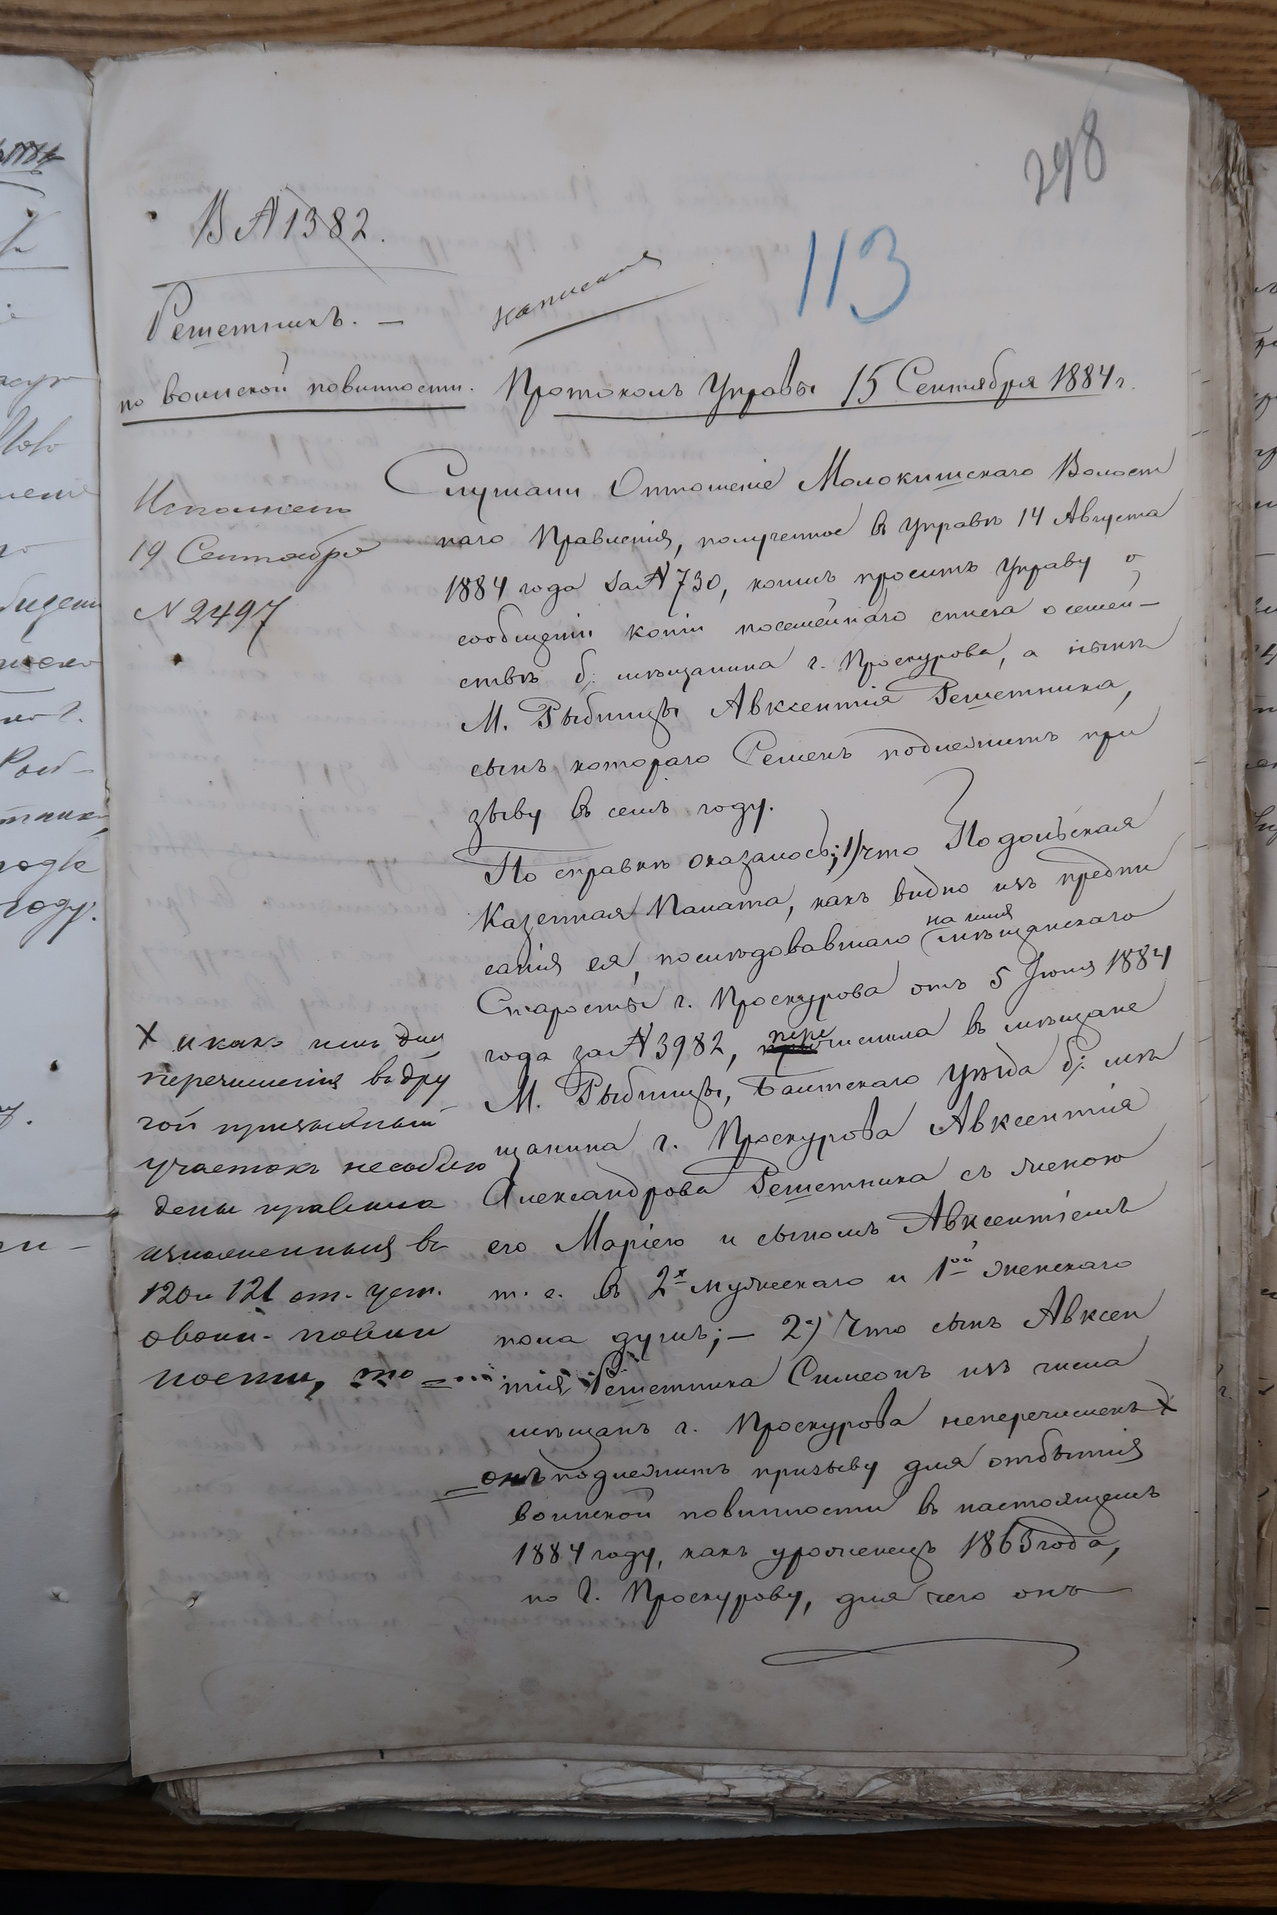 298
В № 1382.
Решетникъ. —
написана
113
по воинской повинности.
Протоколъ Управы 15 Сентября 1884 г.
Исполнено
19 Сентября
№ 2497
Слушали Отношеніе Молокишскаго Волост
наго Правленія, полученное въ Управѣ 14 Августа
1884 года за № 730, коимъ проситъ Управу о
сообщеніи копіи посемейнаго списка о семей-
ствѣ б: мѣщанина г. Проскурова, а нынѣ
М. Рыбницы Авксентія Решетника,
сынъ котораго Семенъ подлежитъ при
зыву въ семъ году.
По справкѣ оказалось; 1) что Подольская
Казенная Палата, какъ видно изъ предпи
санія ея, послѣдовавшаго на имя мѣщанскаго
Старосты г. Проскурова отъ 5 Іюня 1884
года за № 3982, перечислила въ мѣщане
М. Рыбницы, Балтскаго уѣзда б: мѣ
щанина г. Проскурова Авксентія
Александрова Решетника съ женою
его Маріею и сыномъ Авксентіемъ
т. е. въ 2х мужескаго и 1ой женскаго
пола душъ; — 2) Что сынъ Авксен
тія Решетника Симеонъ изъ числа
мѣщанъ г. Проскурова неперечисленъ X
X и какъ имъ для
перечисленія въ дру
гой призывный
участокъ несоблю
дены правила
изложенныя въ
120 и 121 ст. уст.
о воин. повин
ности, то =
= онъ подлежитъ призыву для отбытія
воинской повинности въ настоящемъ
1884 году, какъ уроженецъ 1863 года,
по г. Проскурову, для чего онъ